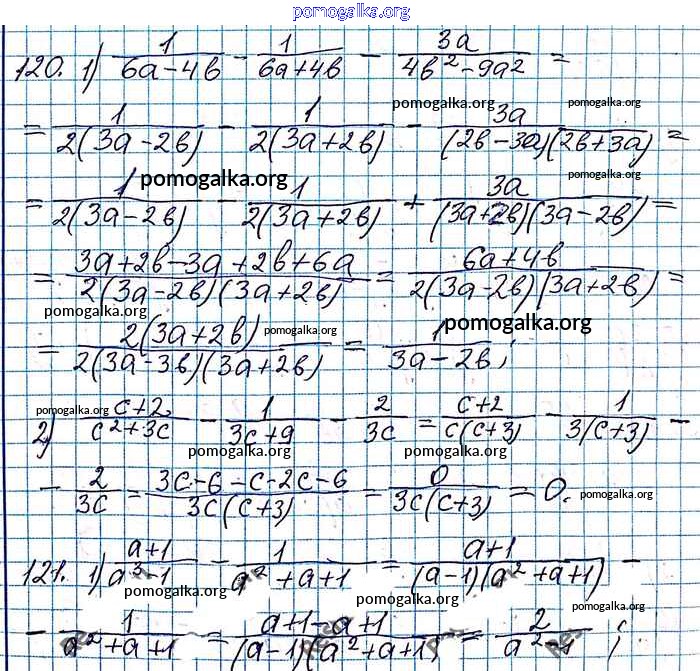 pomogalka.org
120. 1) 1/(6a-4b) - 1/(6a+4b) - 3a/(4b²-9a²) =
pomogalka.org pomogalka.org
= 1/(2(3a-2b)) - 1/(2(3a+2b)) - 3a/((2b-3a)(2b+3a)) =
pomogalka.org
= 1/(2(3a-2b)) - 1/(2(3a+2b)) + 3a/((3a+2b)(3a-2b)) =
= (3a+2b-3a+2b+6a)/(2(3a-2b)(3a+2b)) = (6a+4b)/(2(3a-2b)(3a+2b)) =
pomogalka.org pomogalka.org pomogalka.org
= 2(3a+2b)/(2(3a-3b)(3a+2b)) = 1/(3a-2b);
pomogalka.org
2) (c+2)/(c²+3c) - 1/(3c+9) - 2/(3c) = (c+2)/(c(c+3)) - 1/(3(c+3)) -
pomogalka.org pomogalka.org
- 2/(3c) = (3c-6-c-2c-6)/(3c(c+3)) = 0/(3c(c+3)) = 0.
pomogalka.org
121. 1) (a+1)/(a³-1) - 1/(a²+a+1) = (a+1)/((a-1)(a²+a+1)) -
pomogalka.org
- 1/(a²+a+1) = (a+1-a+1)/((a-1)(a²+a+1)) = 2/(a²-1);